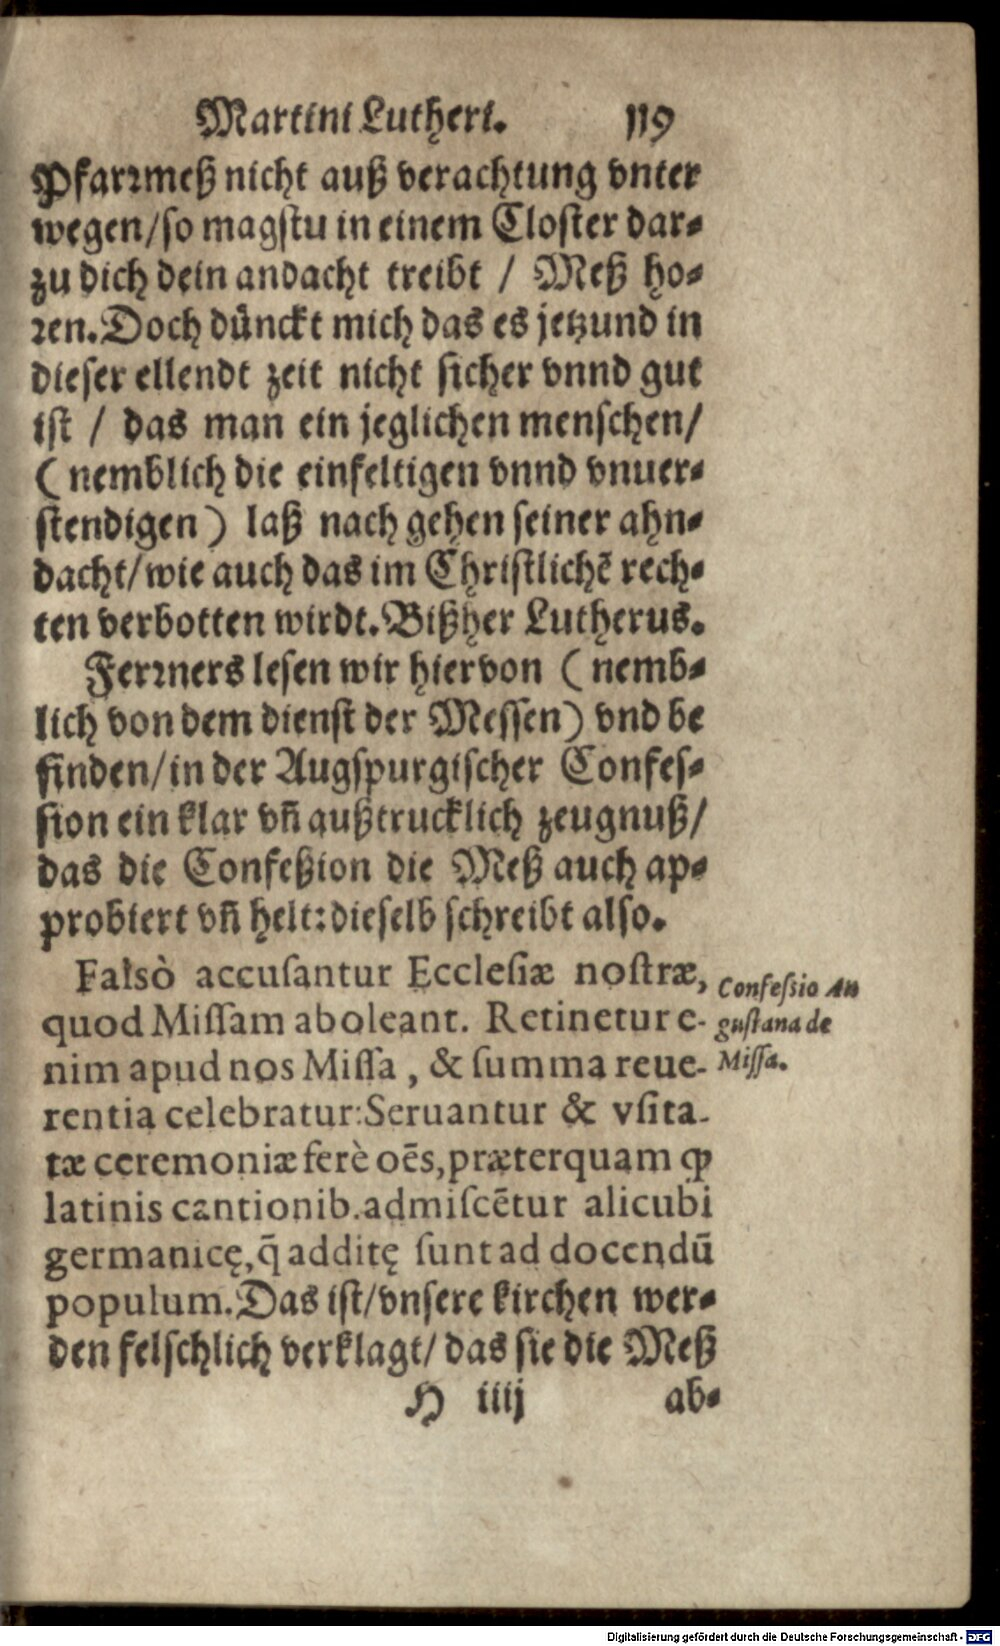 Martini Lutheri. 119
Pfarrmeß nicht auß verachtung vnter
wegen/so magstu in einem Closter dar-
zu dich dein andacht treibt / Meß ho-
ren. Doch dünckt mich das es jetzund in
dieser ellendt zeit nicht sicher vnnd gut
ist / das man ein jeglichen menschen/
(nemblich die einfeltigen vnnd vnuer-
stendigen) laß nach gehen seiner ahn-
dacht/wie auch das im Christlichē rech-
ten verbotten wirdt. Bißher Lutherus.
Ferrners lesen wir hiervon (nemb-
lich von dem dienst der Messen) vnd be
finden/in der Augspurgischer Confes-
sion ein klar vn̄ außtrucklich zeugnuß/
das die Confeßion die Meß auch ap-
probiert vn̄ helt: dieselb schreibt also.
Falsò accusantur Ecclesiæ nostræ,
quod Missam aboleant. Retinetur e-
nim apud nos Missa, & summa reue-
rentia celebratur: Seruantur & vsita-
tæ ceremoniæ ferè oēs, præterquam ꝙ
latinis cantionib. admiscētur alicubi
germanicę, q̄ additę sunt ad docendū
populum. Das ist/vnsere kirchen wer-
den felschlich verklagt/ das sie die Meß
H iiij ab-
Confessio Au
gustana de
Missa.
Digitalisierung gefördert durch die Deutsche Forschungsgemeinschaft - DFG